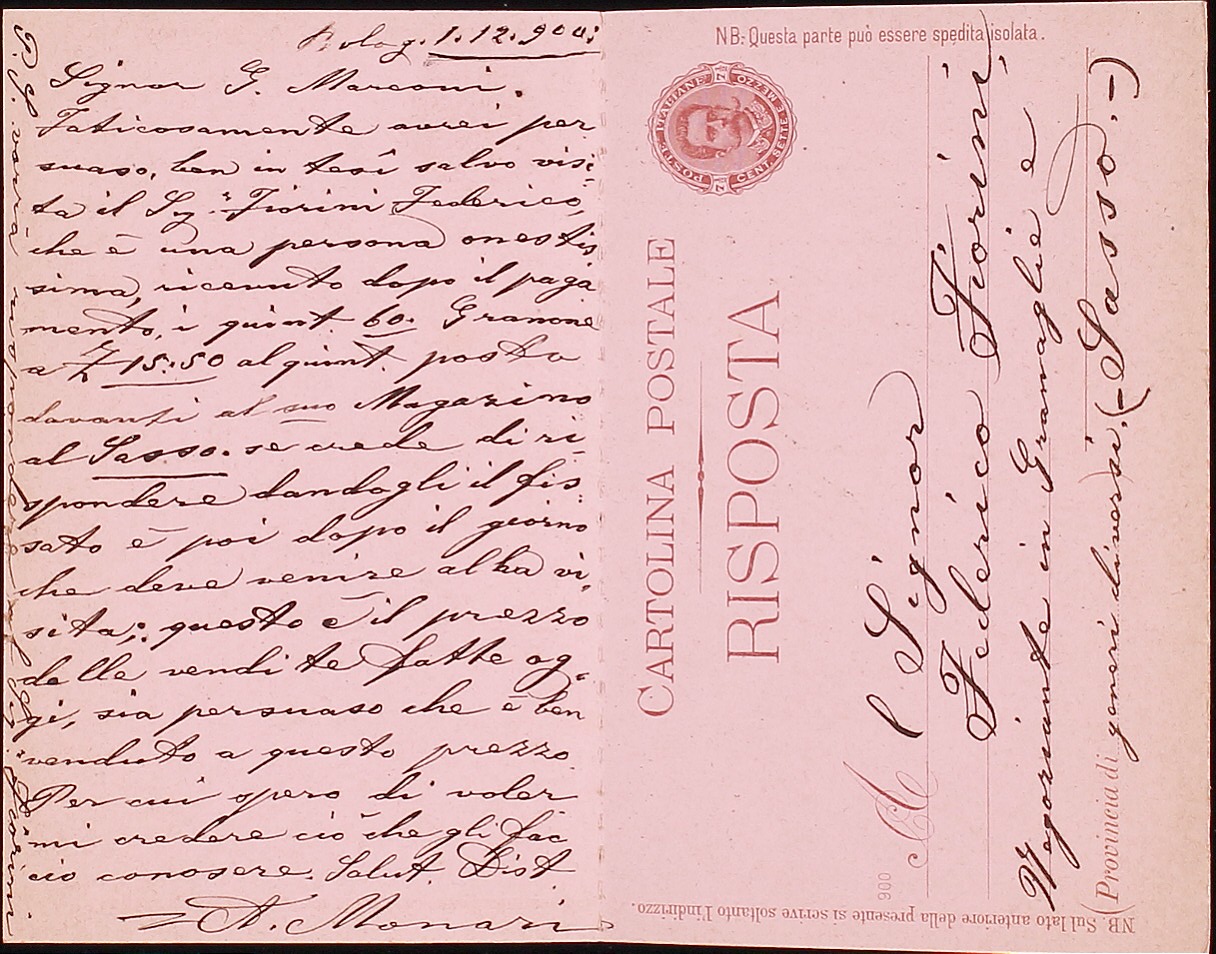 Bolog. 1.12.900:
Signor G. Marconi.
Faticosamente avrei per
suaso, ben in tesi salvo visi-
ta il Sig.r Fiorini Federico,
che è una persona onestis
sima, ricevuto dopo il paga
mento, i quint. 60. Granone
a £ 15:50 al quint. posto
davanti al suo Magazino
al Sasso. se crede di ri-
spondere dandogli il fis-
sato è poi dopo il giorno
che deve venire al ha vi-
sita; questo è il prezzo
delle vendite fatte og-
gi, sia persuaso che è ben
venduto a questo prezzo.
Per cui spero di voler
mi credere ciò che gli fac
cio conoscere. Salut. Dist.
A. Monari
P.S. vorrà rispondere al Sig.r Fiorini
NB: Questa parte può essere spedita isolata.
POSTE ITALIANE
CENT. SETTE E MEZZO
CARTOLINA POSTALE
RISPOSTA
Al Signor
Federico Fiorini
Negoziante in Granaglie e
(Provincia di generi diversi. (-Sasso.-)
NB. Sul lato anteriore della presente si scrive soltanto l'indirizzo.
900